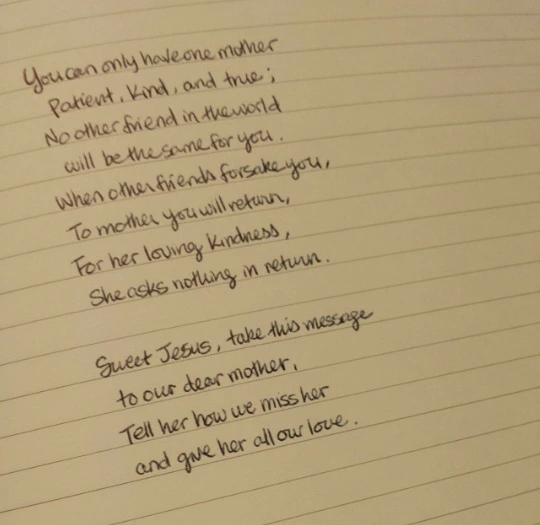 You can only have one mother
Patient, kind, and true;
No other friend in the world
will be the same for you.
When other friends forsake you,
To mother you will return,
For her loving kindness,
She asks nothing in return.
Sweet Jesus, take this message
to our dear mother,
Tell her how we miss her
and give her all our love.